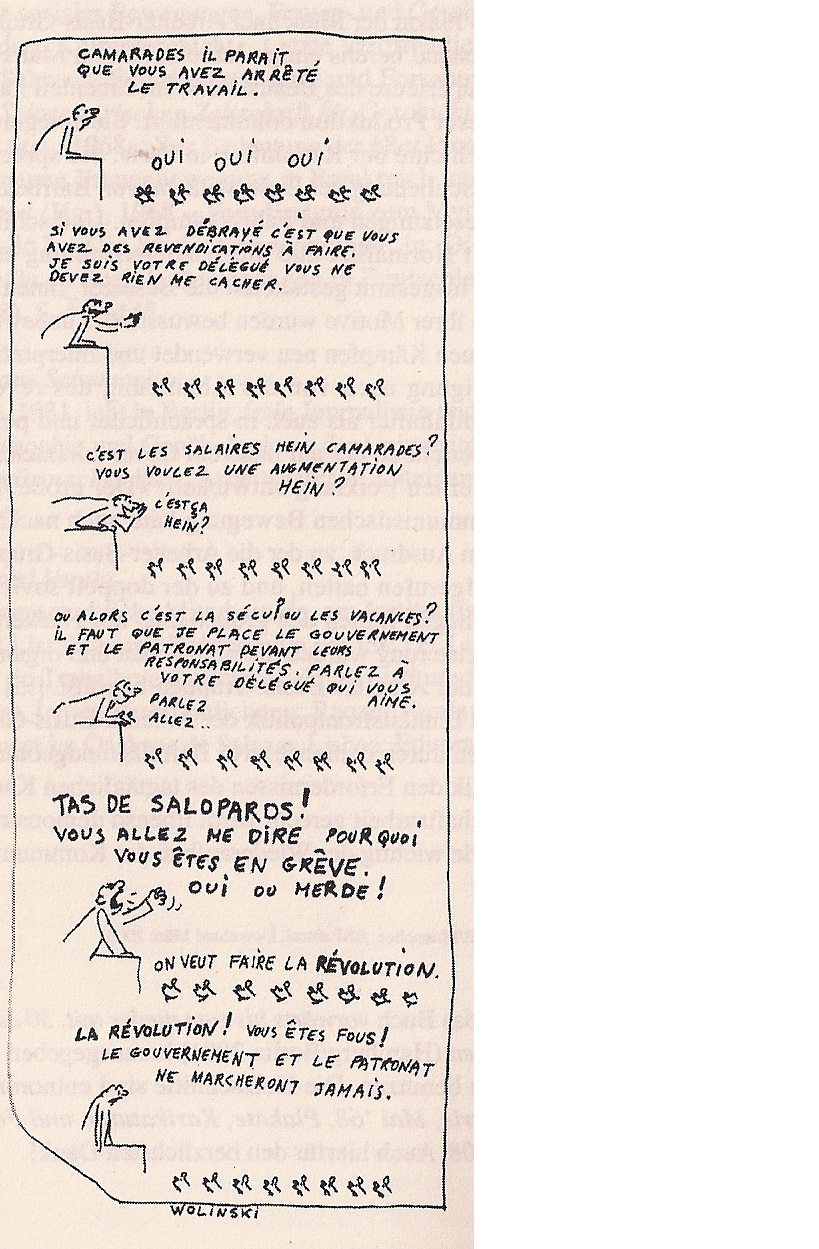 CAMARADES IL PARAIT
QUE VOUS AVEZ ARRÊTÉ
LE TRAVAIL.
OUI OUI OUI
SI VOUS AVEZ DÉBRAYÉ C'EST QUE VOUS
AVEZ DES REVENDICATIONS À FAIRE.
JE SUIS VOTRE DÉLÉGUÉ VOUS NE
DEVEZ RIEN ME CACHER.
C'EST LES SALAIRES HEIN CAMARADES?
VOUS VOULEZ UNE AUGMENTATION
HEIN?
C'EST ÇA
HEIN?
OU ALORS C'EST LA SÉCU? OU LES VACANCES?
IL FAUT QUE JE PLACE LE GOUVERNEMENT
ET LE PATRONAT DEVANT LEURS
RESPONSABILITÉS. PARLEZ À
VOTRE DÉLÉGUÉ QUI VOUS
AIME.
PARLEZ
ALLEZ..
TAS DE SALOPARDS!
VOUS ALLEZ ME DIRE POURQUOI
VOUS ÊTES EN GRÊVE.
OUI OU MERDE!
ON VEUT FAIRE LA RÉVOLUTION.
LA RÉVOLUTION! VOUS ÊTES FOUS!
LE GOUVERNEMENT ET LE PATRONAT
NE MARCHERONT JAMAIS.
WOLINSKI